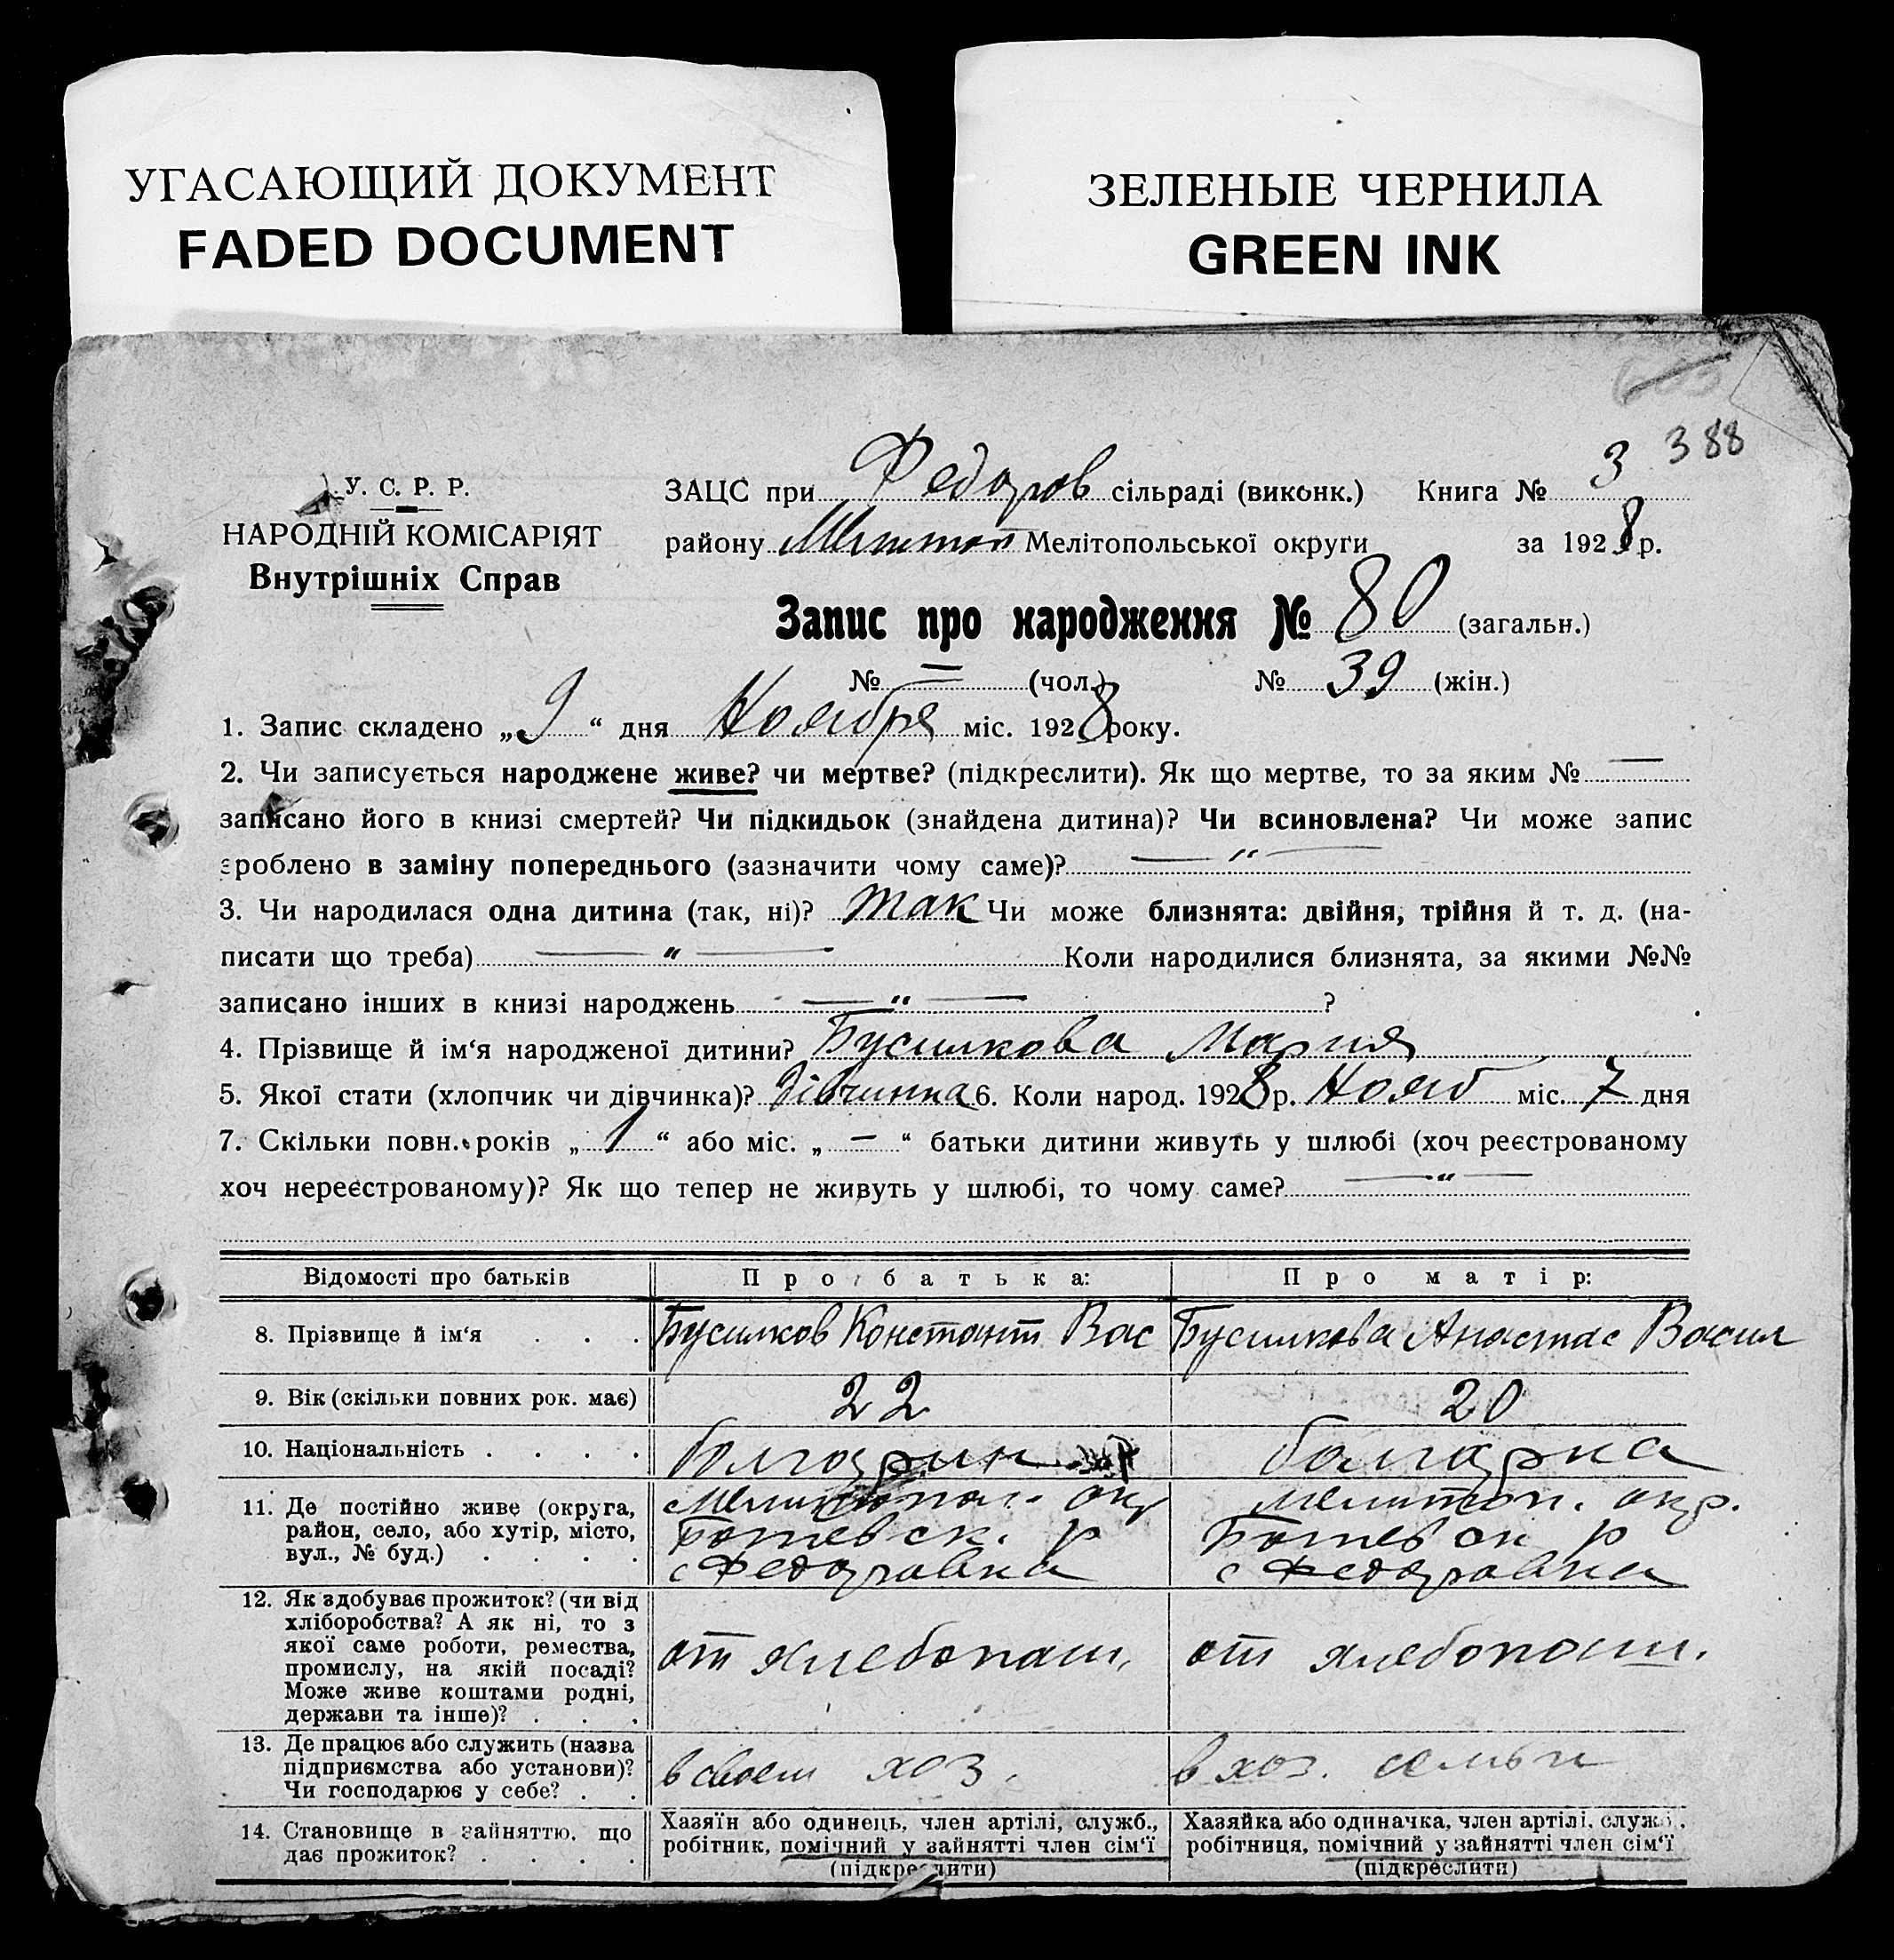 УГАСАЮЩИЙ ДОКУМЕНТ
FADED DOCUMENT
ЗЕЛЕНЫЕ ЧЕРНИЛА
GREEN INK
388
У. С. Р. Р.
НАРОДНІЙ КОМІСАРІЯТ
Внутрішніх Справ
ЗАЦС при Федоров сільраді (виконк.) Книга № 3
району Мелитоп Мелітопольської округи за 1928 р.
Запис про народження № 80 (загальн.)
№ — (чол.) № 39 (жін.)
1. Запис складено „9“ дня Ноября міс. 1928 року.
2. Чи записується народжене живе? чи мертве? (підкреслити). Як що мертве, то за яким № —
записано його в книзі смертей? Чи підкидьок (знайдена дитина)? Чи всиновлена? Чи може запис
зроблено в заміну попереднього (зазначити чому саме)? — „ —
3. Чи народилася одна дитина (так, ні)? Так Чи може близнята: двійня, трійня й т. д. (на-
писати що треба) — „ — Коли народилися близнята, за якими №№
записано інших в книзі народжень — „ — ?
4. Прізвище й ім‘я народженої дитини? Бусилкова Мария
5. Якої стати (хлопчик чи дівчинка)? Дівчинка 6. Коли народ. 1928 р. Нояб міс. 7 дня
7. Скільки повн. років „1“ або міс. „—“ батьки дитини живуть у шлюбі (хоч реєстрованому
хоч нереєстрованому)? Як що тепер не живуть у шлюбі, то чому саме? — „ —
Відомості про батьків
Про батька:
Про матір:
8. Прізвище й ім‘я . . .
Бусилков Константи Вас
Бусилкова Анастас Васил
9. Вік (скільки повних рок. має)
22
20
10. Національність . . . .
болгарин
болгарка
11. Де постійно живе (округа,
район, село, або хутір, місто,
вул., № буд.) . . . .
Мелитопол. окр
Ботевск. р
с Федоровка
Мелитоп. окр.
Ботевск р
с Федоровка
12. Як здобуває прожиток? (чи від
хліборобства? А як ні, то з
якої саме роботи, ремества,
промислу, на якій посаді?
Може живе коштами родні,
держави та інше)? . . .
от хлебопаш.
от хлебопаш.
13. Де працює або служить (назва
підприємства або установи)?
Чи господарює у себе? . .
в своем хоз.
в хоз. семьи
14. Становище в зайняттю, що
дає прожиток? . . . .
Хазяїн або одинець, член артілі, служб.,
робітник, помічний у зайнятті член сім‘ї
(підкреслити)
Хазяйка або одиначка, член артілі, служб.,
робітниця, помічний у зайнятті член сім‘ї
(підкреслити)